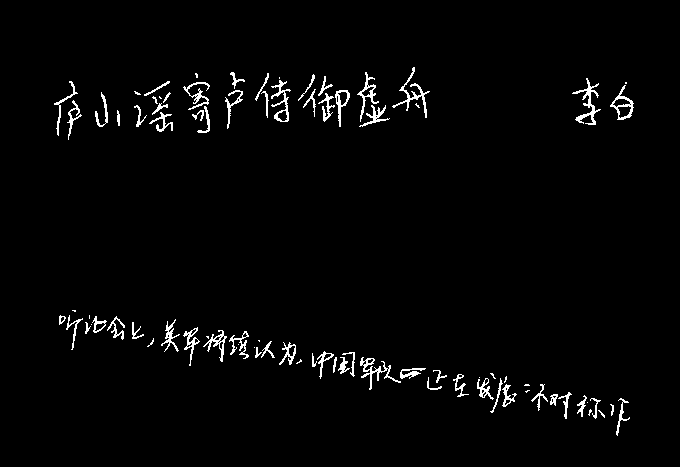 庐山谣寄卢侍御虚舟 李白
听证会上,美军将领认为,中国军队正在发展“不对称作